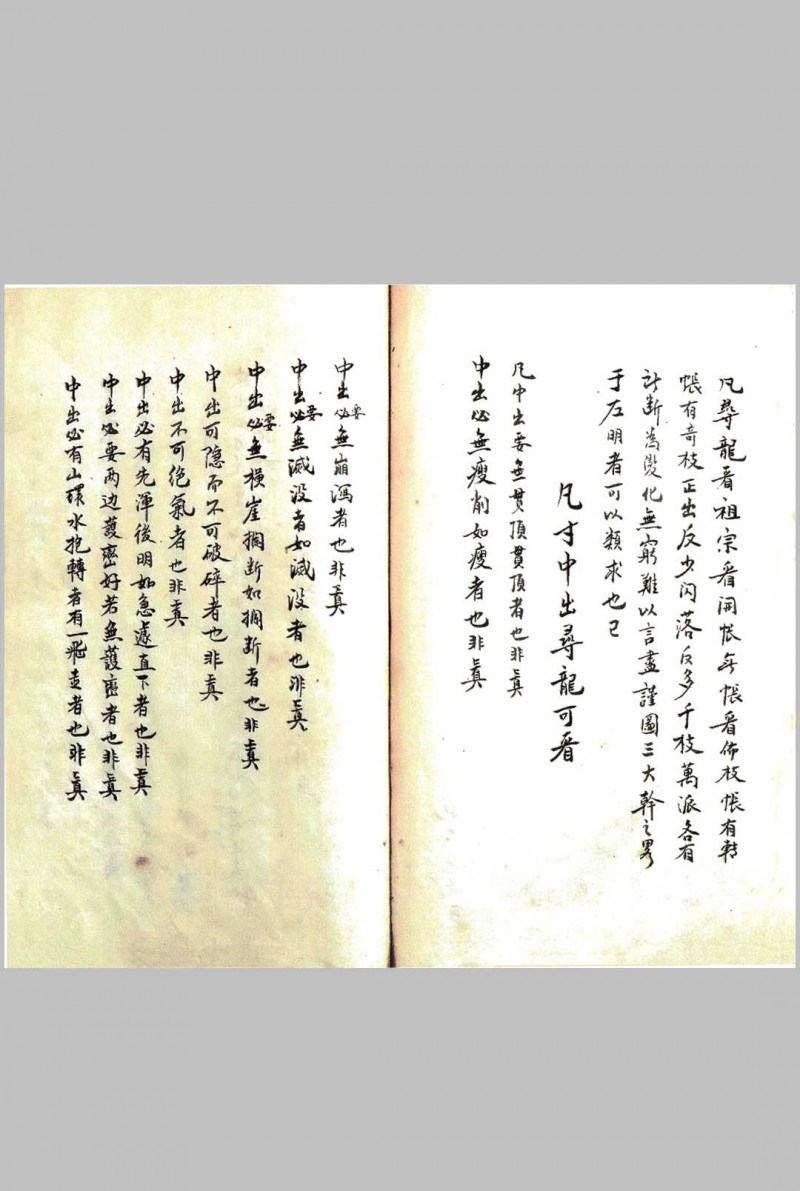 凡尋龍看祖宗看開帳每帳看佈枝帳有對
帳有奇枝正出反少閃落反多千枝萬派各有
斷為變化無窮難以言盡謹圖三大幹之畧
于左明者可以類求也已
凡寸中出尋龍可看
凡中出要無貫頂貫頂者也非真
中出必無瘦削如瘦者也非真
中出必要無崩瀉者也非真
中出必要無滅没者如滅没者也非真
中出必要無橫崖攔斷如攔斷者也非真
中出可隐而不可破碎者也非真
中出不可绝氣者也非真
中出必有先渾後明如急遽直下者也非真
中出必要两边護密好若無護密者也非真
中出必有山環水抱轉者有一飛走者也非真